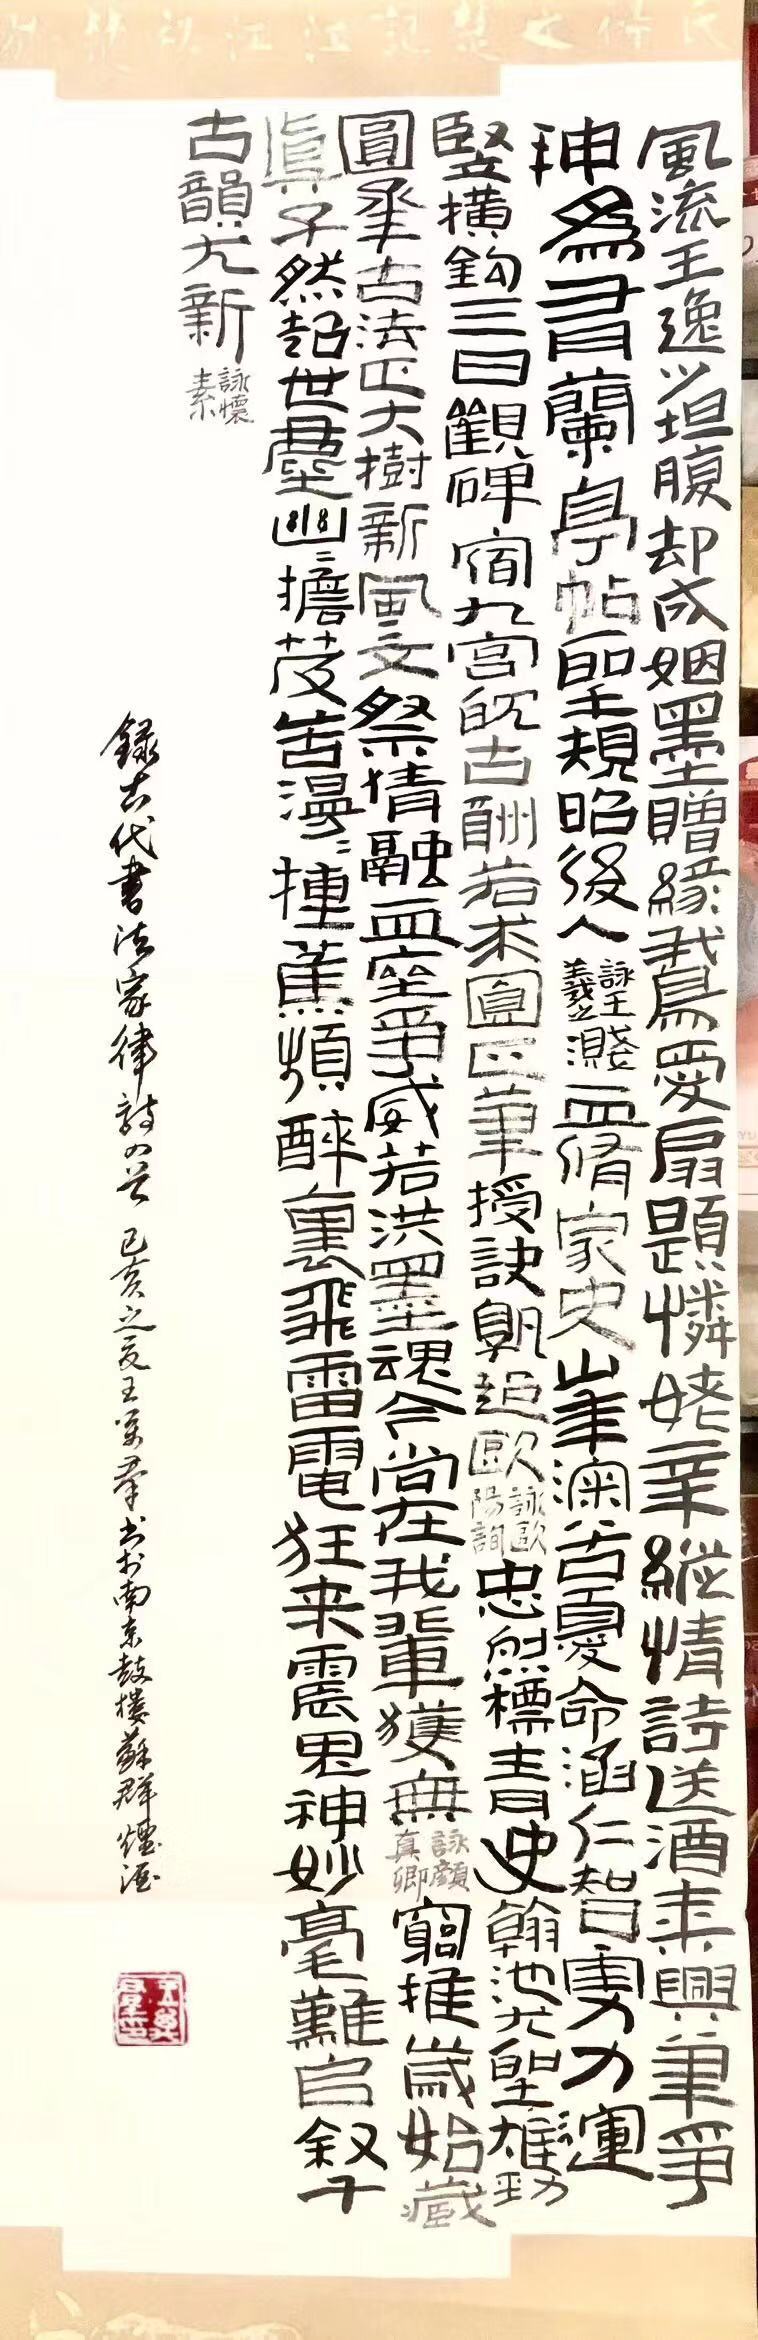 風流王逸少坦腹却成姻墨贈緣我鳥愛扇題憐姥辛縱情詩送酒乘興筆爭
珅為書蘭亭帖聖規昭後人 詠王羲之 濺血脩家史峯淘苦憂命涵仁智勇力運
竪橫鈎三日觀碑宿九宮既古酬若求圓正筆授訣氣超歐 詠歐陽詢 忠烈標青史翰池尤聖雄勁
圓承古法正大樹新風文祭情融血座爭威若洪墨魂今尚在我輩獲無 詠顏真卿 窮推歲始藏
真子然超世塵幽幽擔芰苦漫漫揰蕉頻醉裏飛雷電狂来震鬼神妙毫難自叙千
古韻尤新 詠懷素
錄古代書法家律詩四首 己亥之夏王萬羣書於南京鼓樓蘇群煙酒